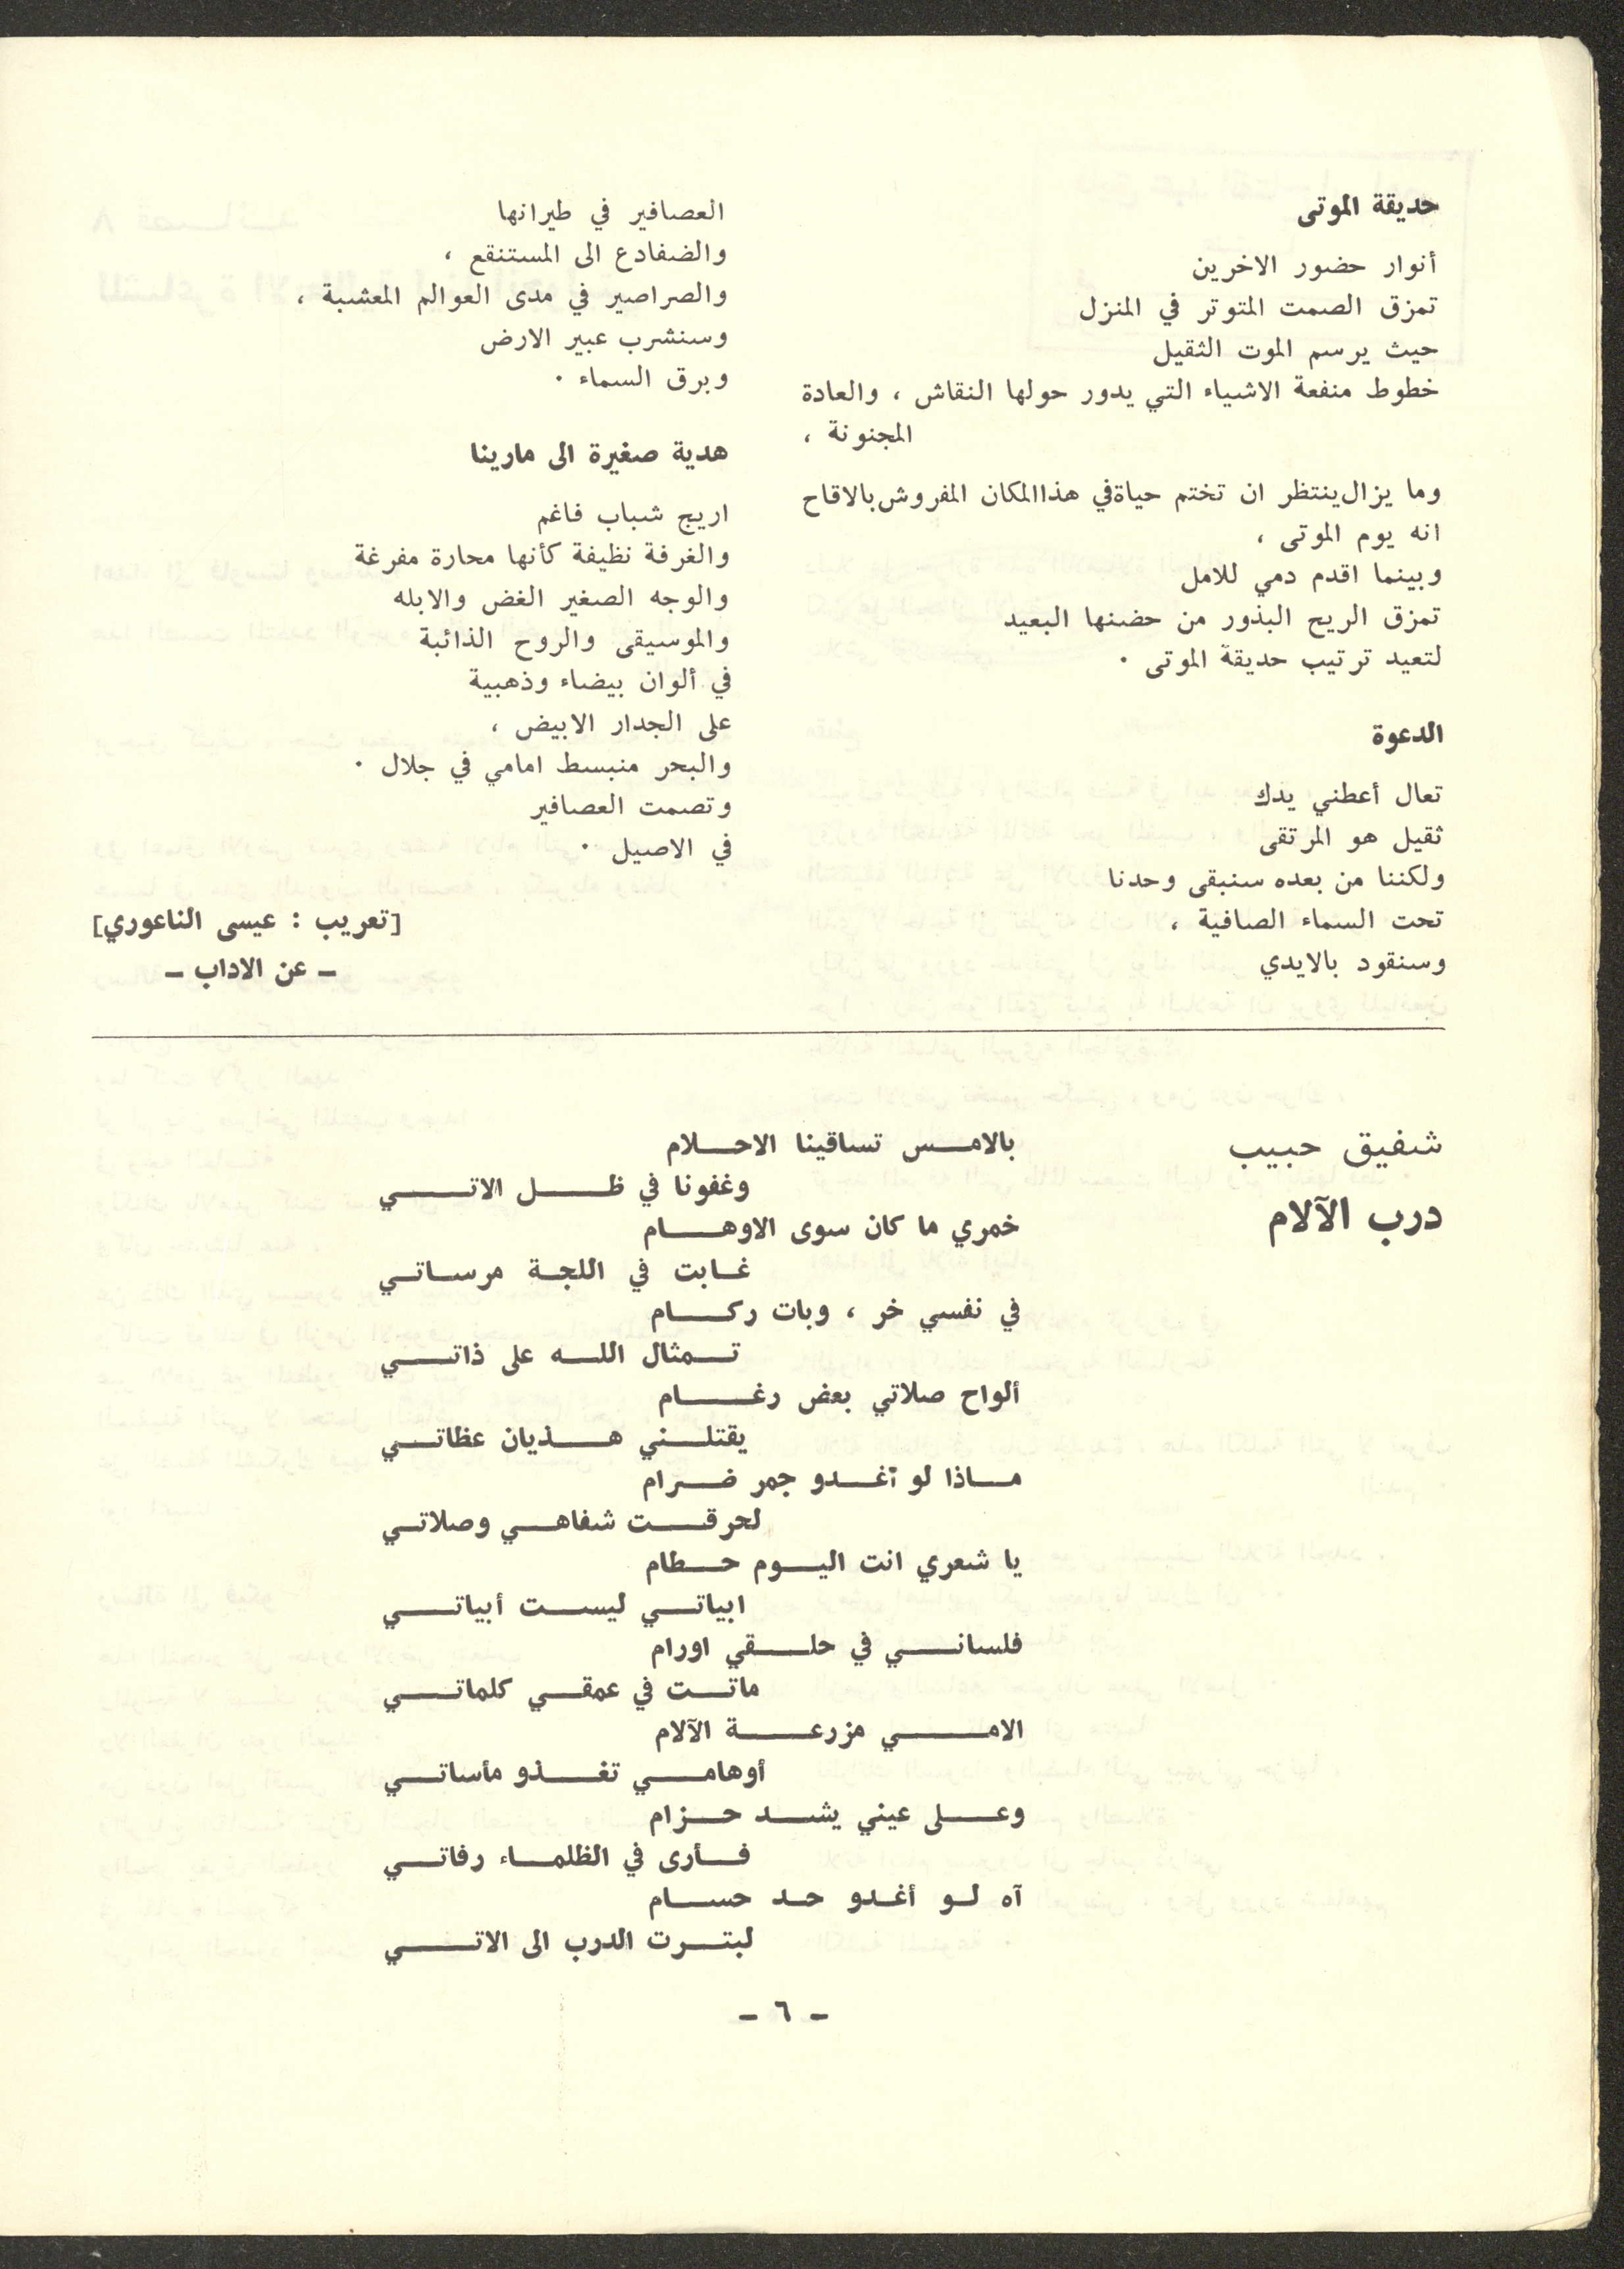 حديقة الموتى
أنوار حضور الاخرين
تمزق الصمت المتوتر في المنزل
حيث يرسم الموت الثقيل
خطوط منفعة الاشياء التي يدور حولها النقاش ، والعادة
المجنونة ،
وما يزال ينتظر ان تختم حياة في هذا المكان المفروش بالاقاح
انه يوم الموتى ،
وبينما اقدم دمي للامل
تمزق الريح البذور من حضنها البعيد
لتعيد ترتيب حديقة الموتى .
الدعوة
تعال أعطني يدك
ثقيل هو المرتقى
ولكننا من بعده سنبقى وحدنا
تحت السماء الصافية ،
وسنقود بالايدي
العصافير في طيرانها
والضفادع الى المستنقع ،
والصراصير في مدى العوالم المعشبة ،
وسنشرب عبير الارض
وبرق السماء .
هدية صغيرة الى مارينا
اريج شباب فاغم
والغرفة نظيفة كأنها محارة مفرغة
والوجه الصغير الغض والابله
والموسيقى والروح الذائبة
في ألوان بيضاء وذهبية
على الجدار الابيض ،
والبحر منبسط امامي في جلال .
وتصمت العصافير
في الاصيل .
[تعريب : عيسى الناعوري]
– عن الاداب –
شفيق حبيب
درب الآلام
بالامس تساقينا الاحلام
وغفونا في ظل الاتي
خمري ما كان سوى الاوهام
غابت في اللجة مرساتي
في نفسي خر ، وبات ركام
تمثال الله على ذاتي
ألواح صلاتي بعض رغام
يقتلني هذيان عظاتي
ماذا لو أغدو جمر ضرام
لحرقت شفاهي وصلاتي
يا شعري انت اليوم حطام
ابياتي ليست أبياتي
فلساني في حلقي اورام
ماتت في عمقي كلماتي
الامي مزرعة الآلام
أوهامي تغذو مأساتي
وعلى عيني يشد حزام
فأرى في الظلماء رفاتي
آه لو أغدو حد حسام
لبترت الدرب الى الاتي
– ٦ –